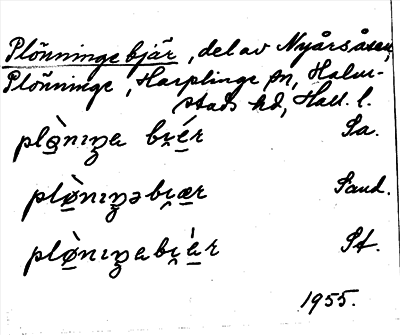 Plönninge bjär, del av Nyårsåsen,
Plönninge, Harplinge sn, Halm-
stads hd, Hall. l.
plø̠̀nɪŋa bi̯é̠r Sa.
plø̠̀nɪŋəbi̯æ̠r Sand.
plø̠̀nɪŋabi̯á̠r St.
1955.